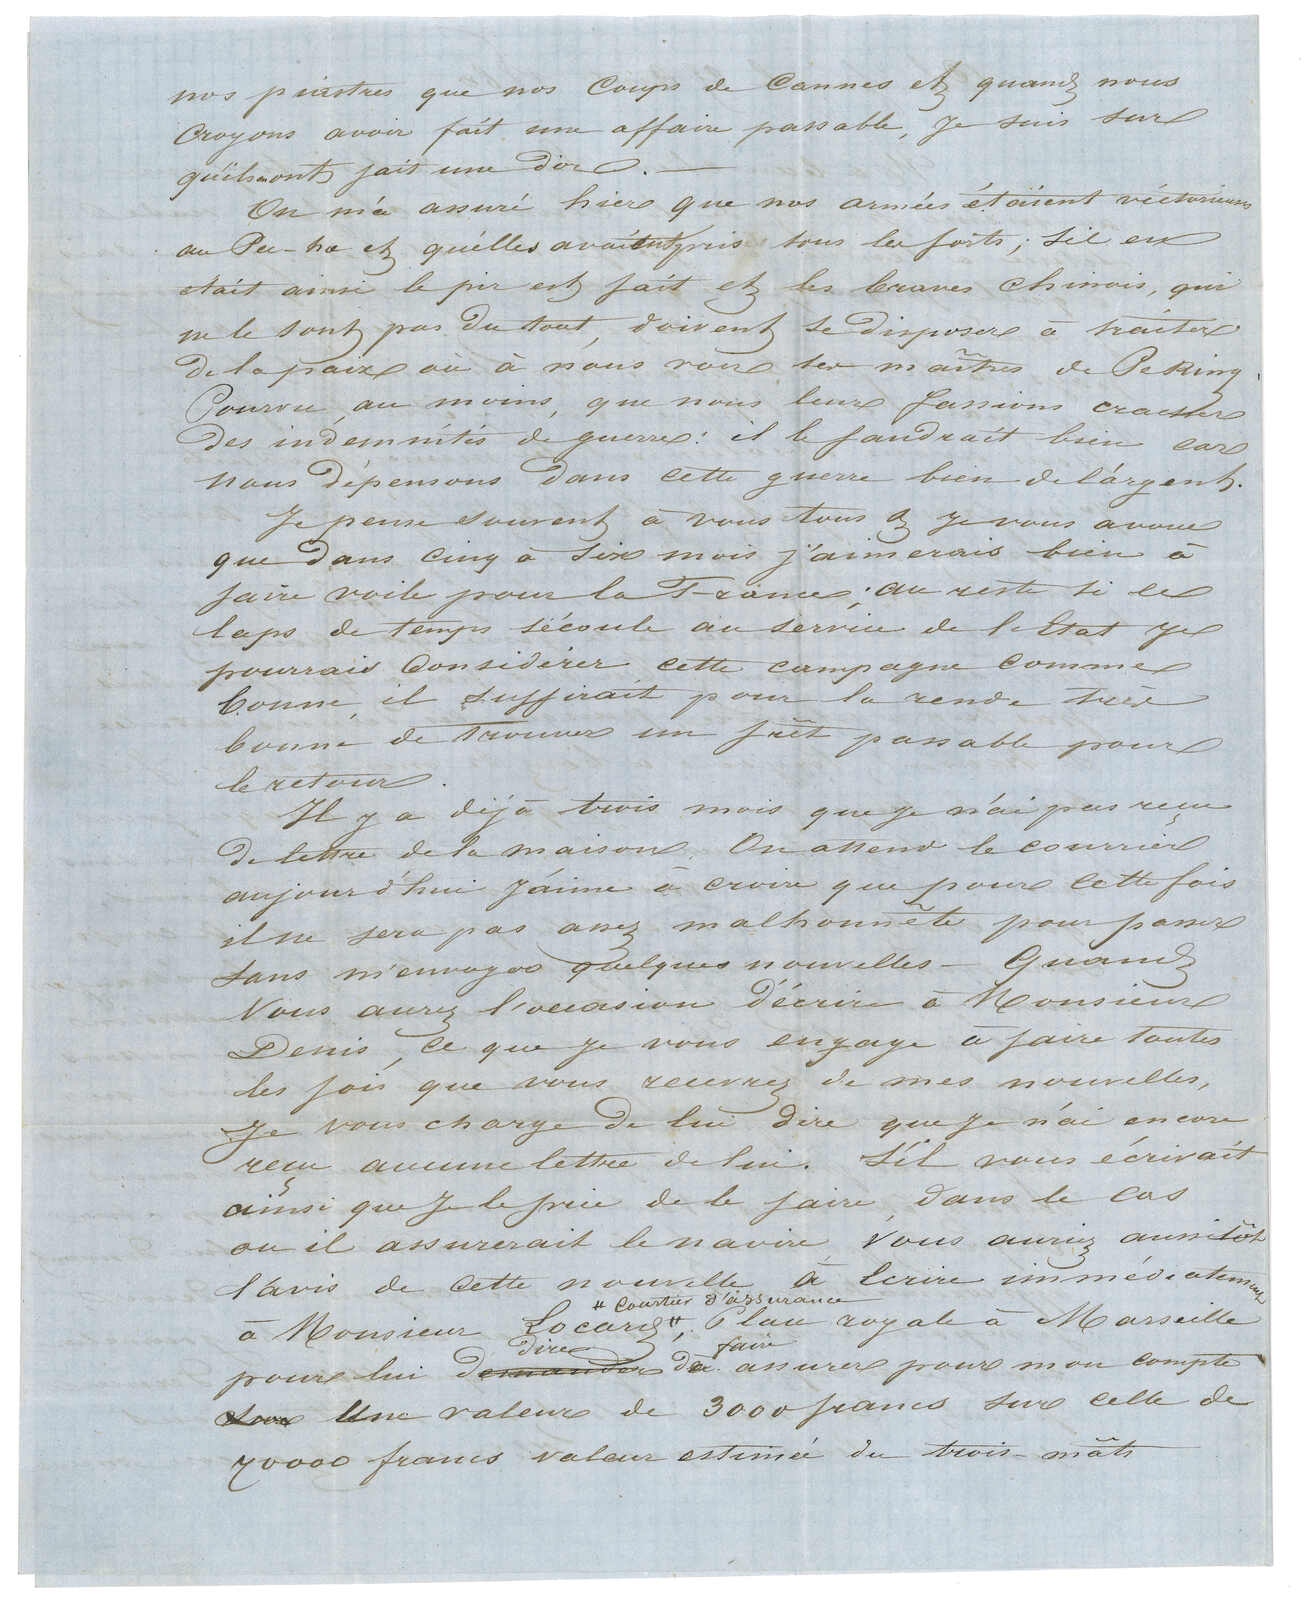 nos piastres que nos Coups de Cannes et quand nous
Croyons avoir fait une affaire passable, je suis sur
qu'ils ont fait une d'or. —
On m'a assuré hier que nos armées étaient victorieuses
au Peï-ho et qu'elles avaient pris tous les forts; s'il en
etait ainsi le pir est fait et les braves chinois, qui
ne le sont pas du tout, doivent se disposer à traiter
de la paix où à nous voir les maîtres de Peking.
Pourvu, au moins, que nous leur fassions cracher
des indemnités de guerre: il le faudrait bien car
nous dépensons dans cette guerre bien de l'argent.
Je pense souvent à vous tous et je vous avoue
que dans cinq à six mois j'aimerais bien à
faire voile pour la France; au reste si ce
laps de temps s'écoule au service de l'Etat je
pourrais Considérer cette campagne comme
bonne, il suffirait pour la rende très
bonne de trouver un frêt passable pour
le retour.
Il y a déjà trois mois que je n'ai pas reçu
de lettre de la maison. On attend le courrier
aujourd'hui j'aime à croire que pour cette fois
il ne sera pas assez malhonnête pour passer
sans m'envoyer quelques nouvelles — Quand
Vous aurez l'occasion d'écrire à Monsieur
Denis, ce que je vous engage à faire toutes
les fois que vous recevrez de mes nouvelles,
Je vous charge de lui dire que je n'ai encore
reçu aucune lettre de lui. S'il vous écrivait
ainsi que je le prie de le faire, dans le cas
ou il assurerait le navire, Vous auriez aussitôt
l'avis de cette nouvelle à Ecrire immédiatement
" Courtier d'assurance
à Monsieur Locard ", Place royale à Marseille
dire faire
pour lui demander de assurer pour mon compte
sur Une valeur de 3000 francs sur celle de
70000 francs valeur estimée du trois-mâts